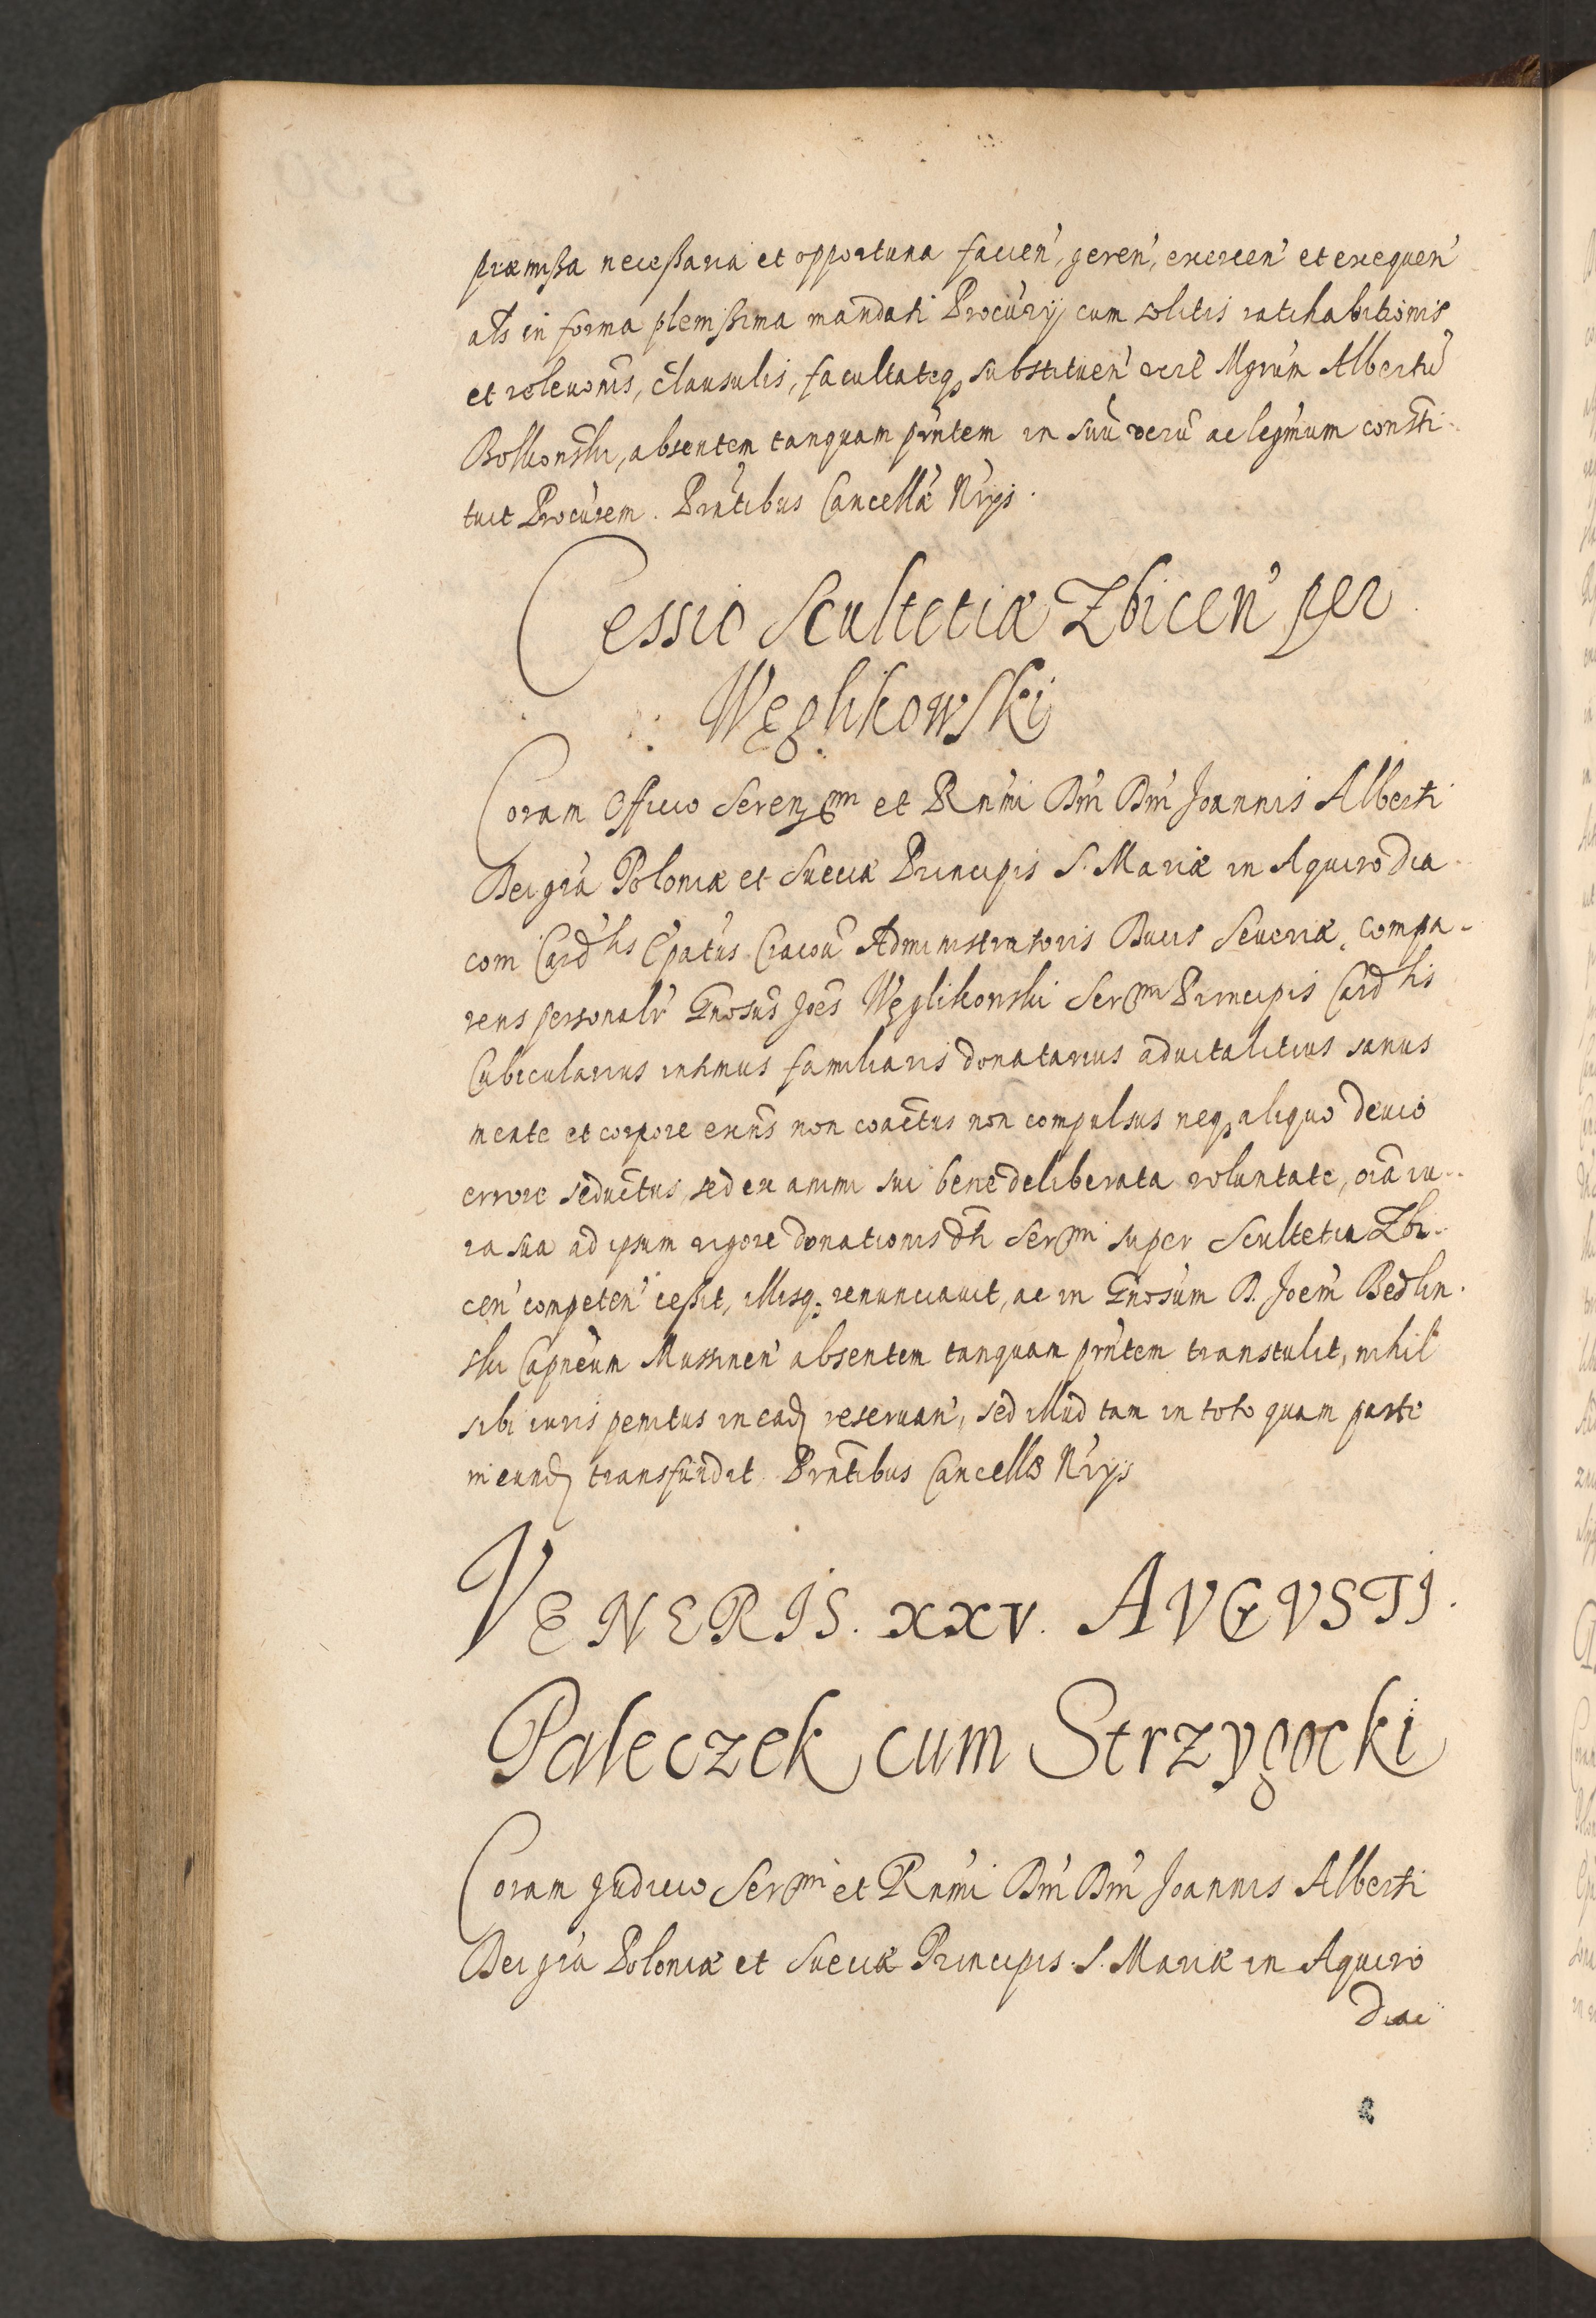 præmissa necessaria et opportuna facien', geren', exercen' et exequen'
als in forma plenissima mandati Procu'rij cum solitis ratihabitionis
et releuonis, clausulis, facultateq; substituen' Mgrum Albertu
absentem tanquam pr'ntem in suu veru ac legi'mum consti-
tuit Procu'rem. Prn'tibus Cancell'æ N'rijs.
Cessio Scultetiæ Zbicen' per
Węglikowski
Coram Officio Sereniss'mi et R'n'mi D'ni D'ni Joannis Alberti
Dei gr'a Poloniæ et Sueciæ Principis S. Mariæ in Aquiro dia-
coni Card'lis Ep'atus Cracou' Administratoris Ducis Seueriæ, compa-
rens personal'r G'nosus Jo'es Węglikowski Ser'mi Principis Card'lis
Cubicularius intimus familiaris donatarius aduitalitius sanus
mente et corpore exn's non coactus non compulsus neq; aliquo deuio
errore seductus, sed ex animi sui bene deliberata voluntate, o'ia iu-
ra sua ad ipsum vigore donationis d'ti Ser'mi super Scultetia Zbi-
cen' competen' cessit, illisq; renunciauit, ac in G'nosum D. Joe'm Bedlin-
ski Capne'um Mussinen' absentem tanquam pr'ntem transtulit, nihil
sibi iuris penitus in ead; reseruan', sed illud tam in toto quam parte
in eund; transfundit. Prn'tibus Cancell'æ N'rijs
VENERIS. XXV. AVGVSTI.
Paleczek cum Strzygocki
Coram Judicio Ser'mi et R'n'mi D'ni D'ni Joannis Alberti
Dei gr'a Poloniæ et Sueciæ Principis S. Mariæ in Aquiro
diac